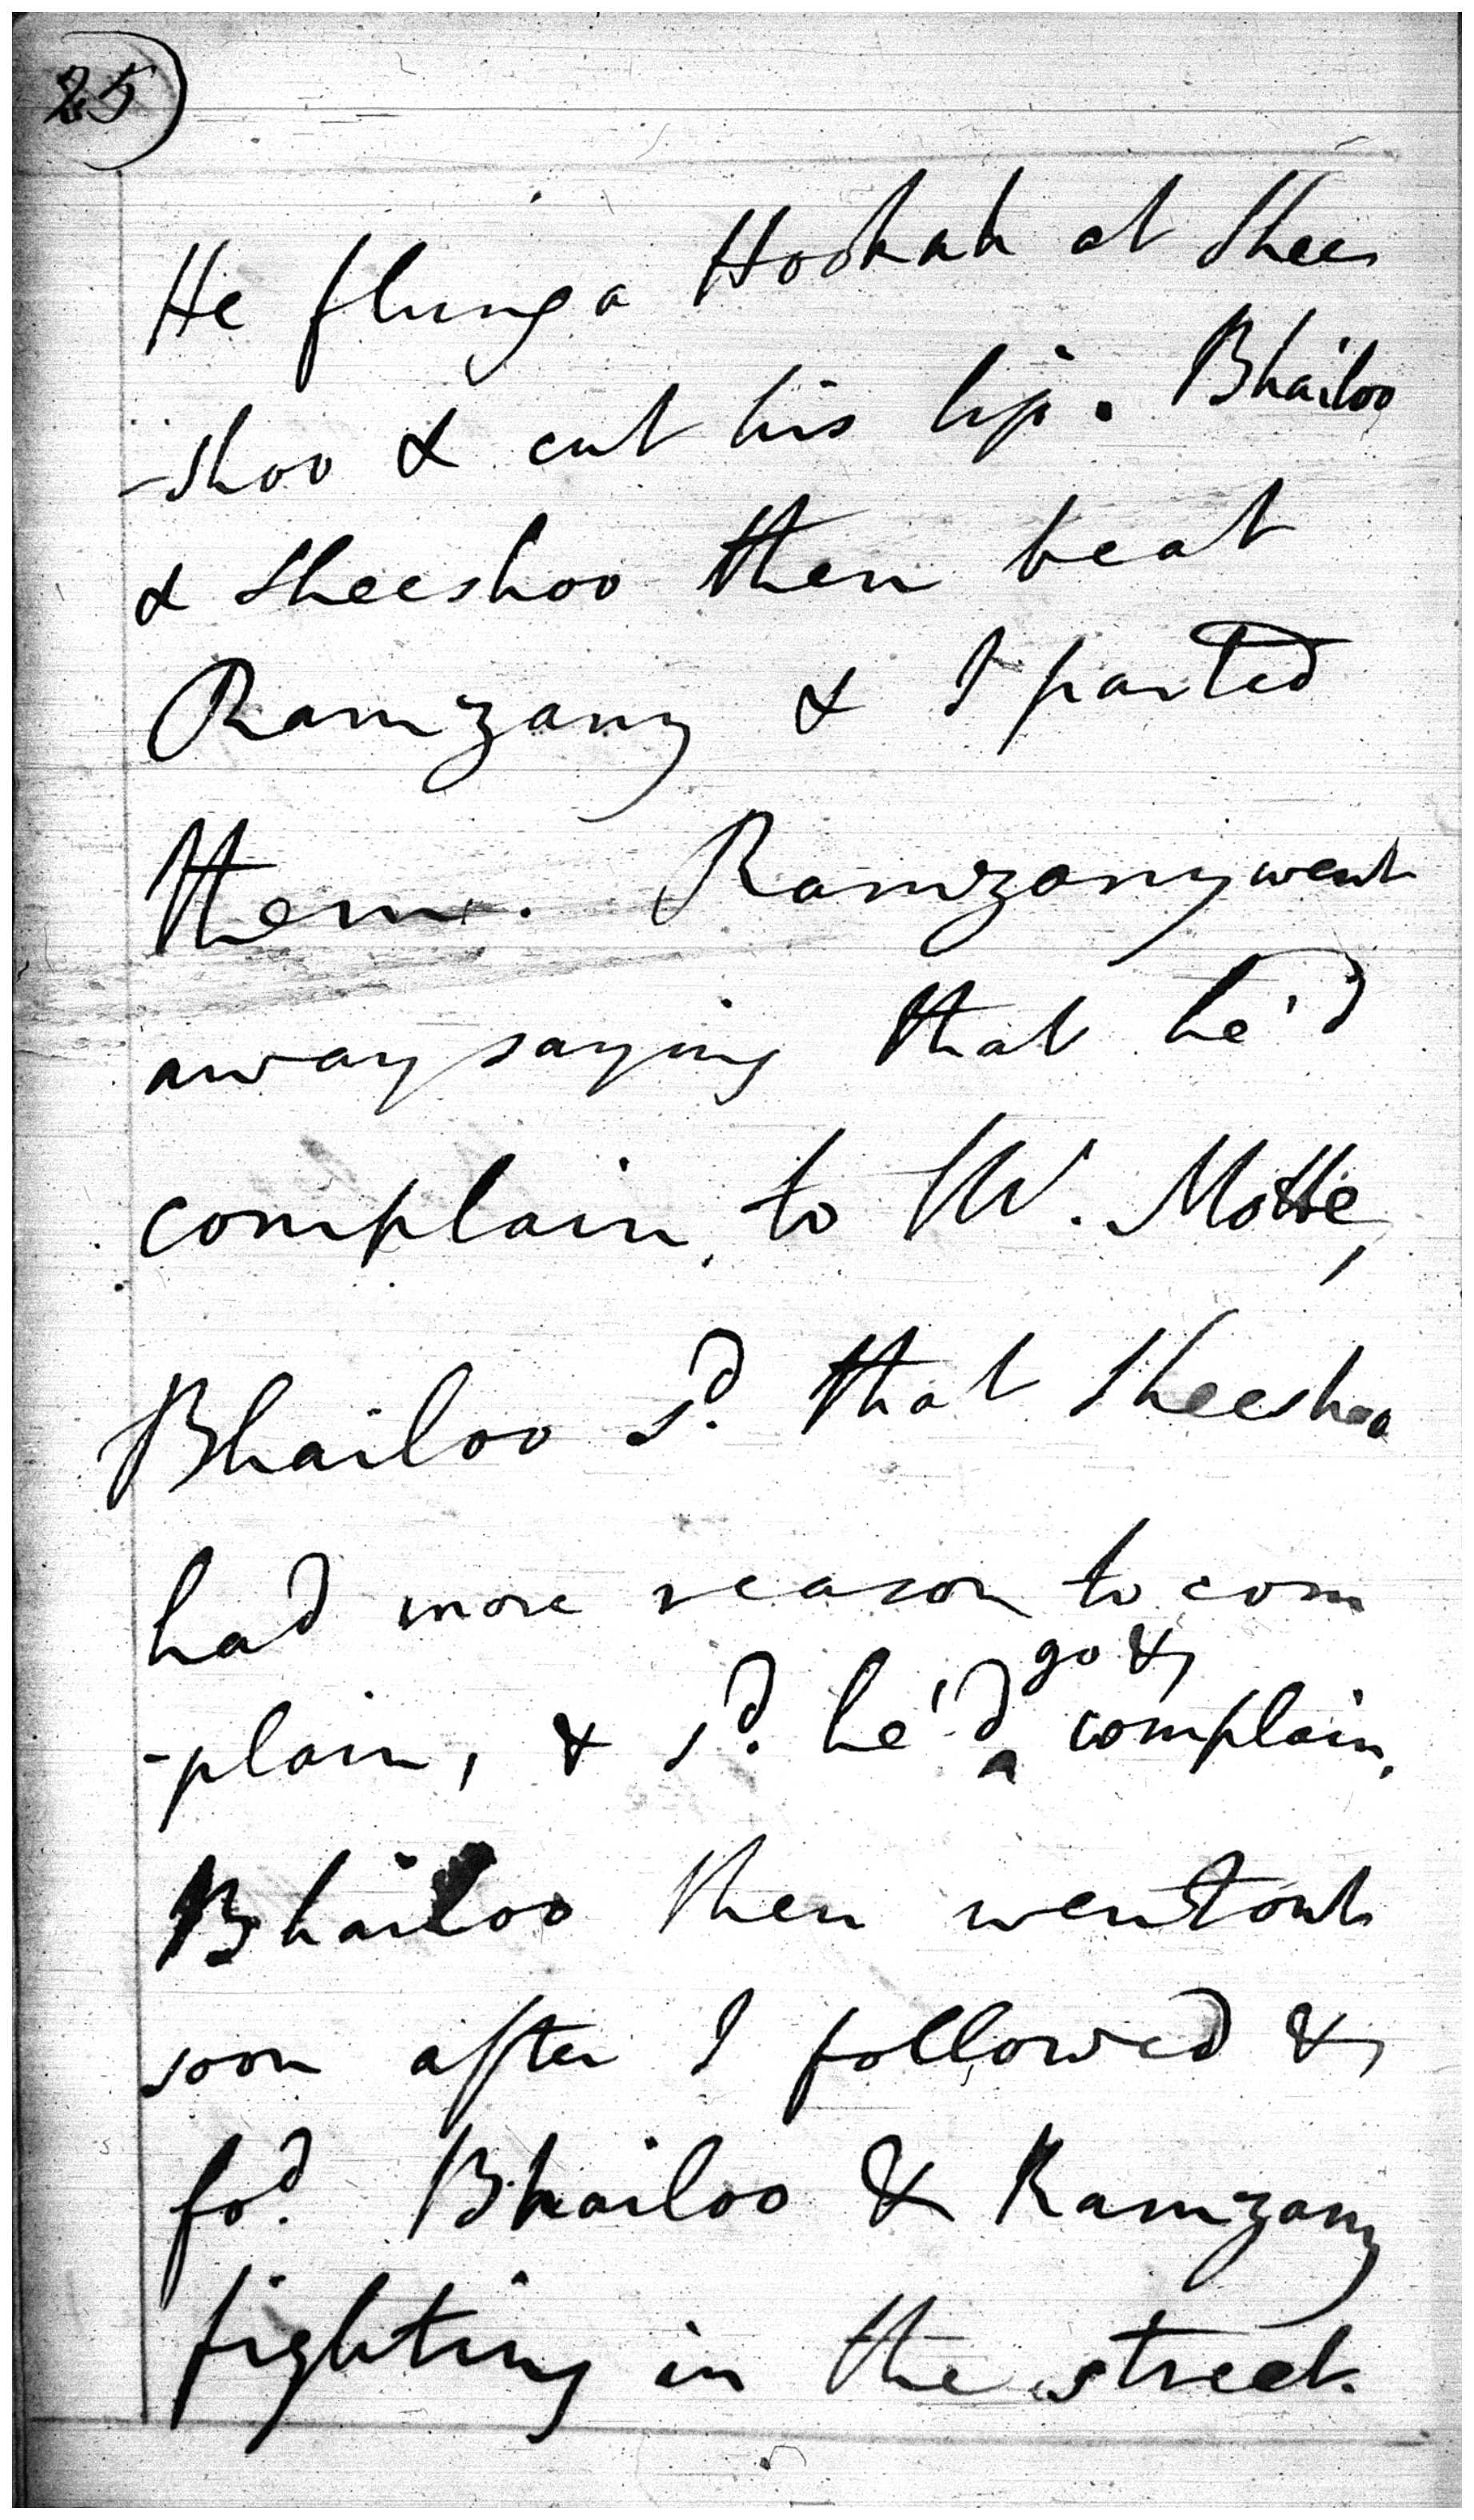 25
He flung a Hookah at Shees
-shoo & cut his lip. Bhailoo
& Sheeshoo then beat
Ramzany & I parted
them. Ramzany went
away saying that he'd
complain to W. Motte,
Bhailoo sd. that Sheeshoo
had more reason to com
go &
-plain, & sd. he'd ^ complain.
Bhailoo then went out
soon after I followed &
fod. Bhailoo & Ramzany
fighting in the street.